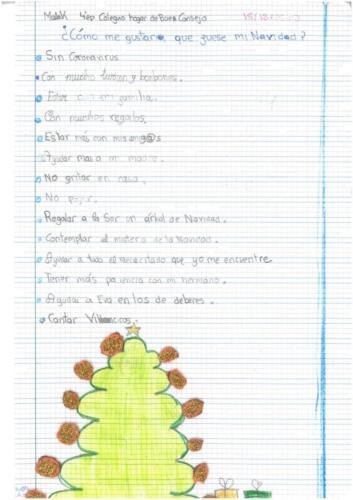 Malak 4ºEP Colegio hogar de Buen Consejo
¿Cómo me gustaría que fuese mi Navidad?
Sin Coronavirus
Con mucho turron y bonbones.
Estar con mi familia.
Con muchos regalos.
Estar más con mis amig@s
Ayudar mas a mi madre.
No gritar en casa.
No pegar.
Regalar a la Sor un árbol de Navidad.
Contemplar el misterio de la Navidad.
Ayudar a todo el necesitado que yo me encuentre.
Tener más paciencia con mi hermano.
Ayudar a Eva en los de deberes.
Cantar Villancicos.